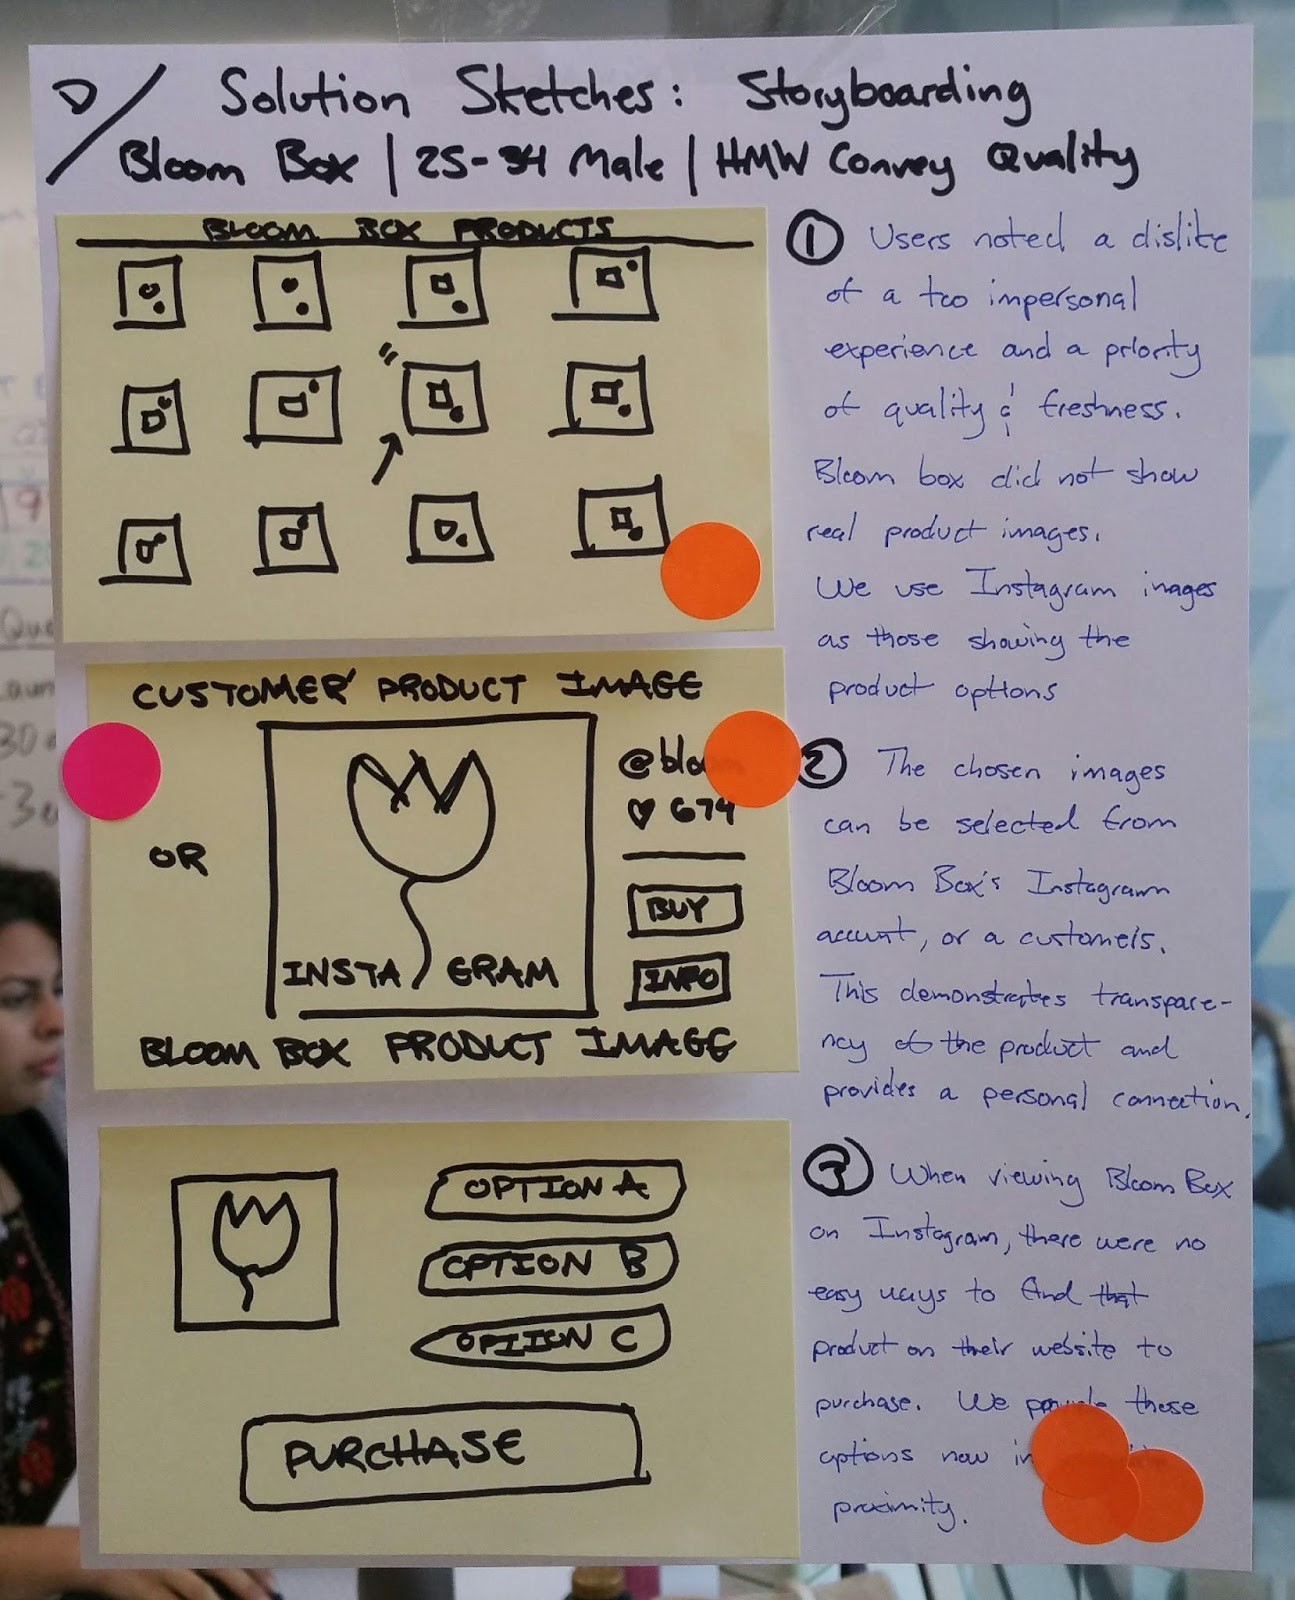 D/ Solution Sketches: Storyboarding
Bloom Box | 25-34 Male | HMW Convey Quality
BLOOM BOX PRODUCTS
CUSTOMER PRODUCT IMAGE
@bloo
♡ 674
OR
BUY
INSTA GRAM
INFO
BLOOM BOX PRODUCT IMAGE
OPTION A
OPTION B
OPTION C
PURCHASE
① Users noted a dislike
of a too impersonal
experience and a priority
of quality & freshness.
Bloom box did not show
real product images.
We use Instagram images
as those showing the
product options
② The chosen images
can be selected from
Bloom Box's Instagram
account, or a customers.
This demonstrates transpare-
ncy of the product and
provides a personal connection.
③ When viewing Bloom Box
on Instagram, there were no
easy ways to find that
product on their website to
purchase. We provide those
options now in
proximity.